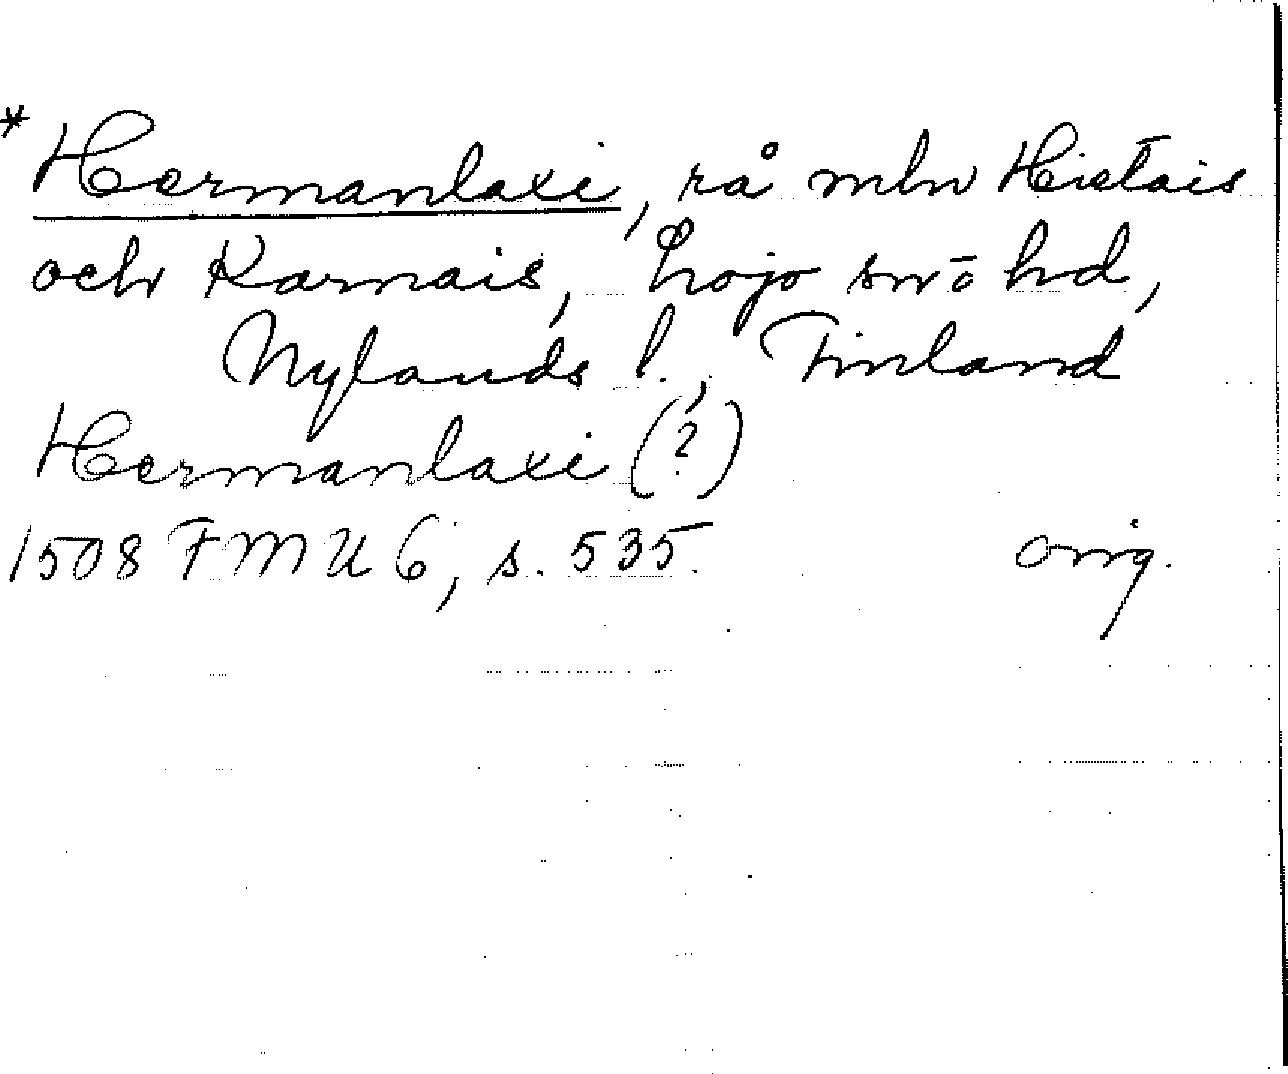 *Hermanlaxi, rå mln Hietais
och Karnais, Lojo sn o hd,
Nylands l., Finland
Hermanlaxi (?)
1508 FMU 6, s. 535. orig.